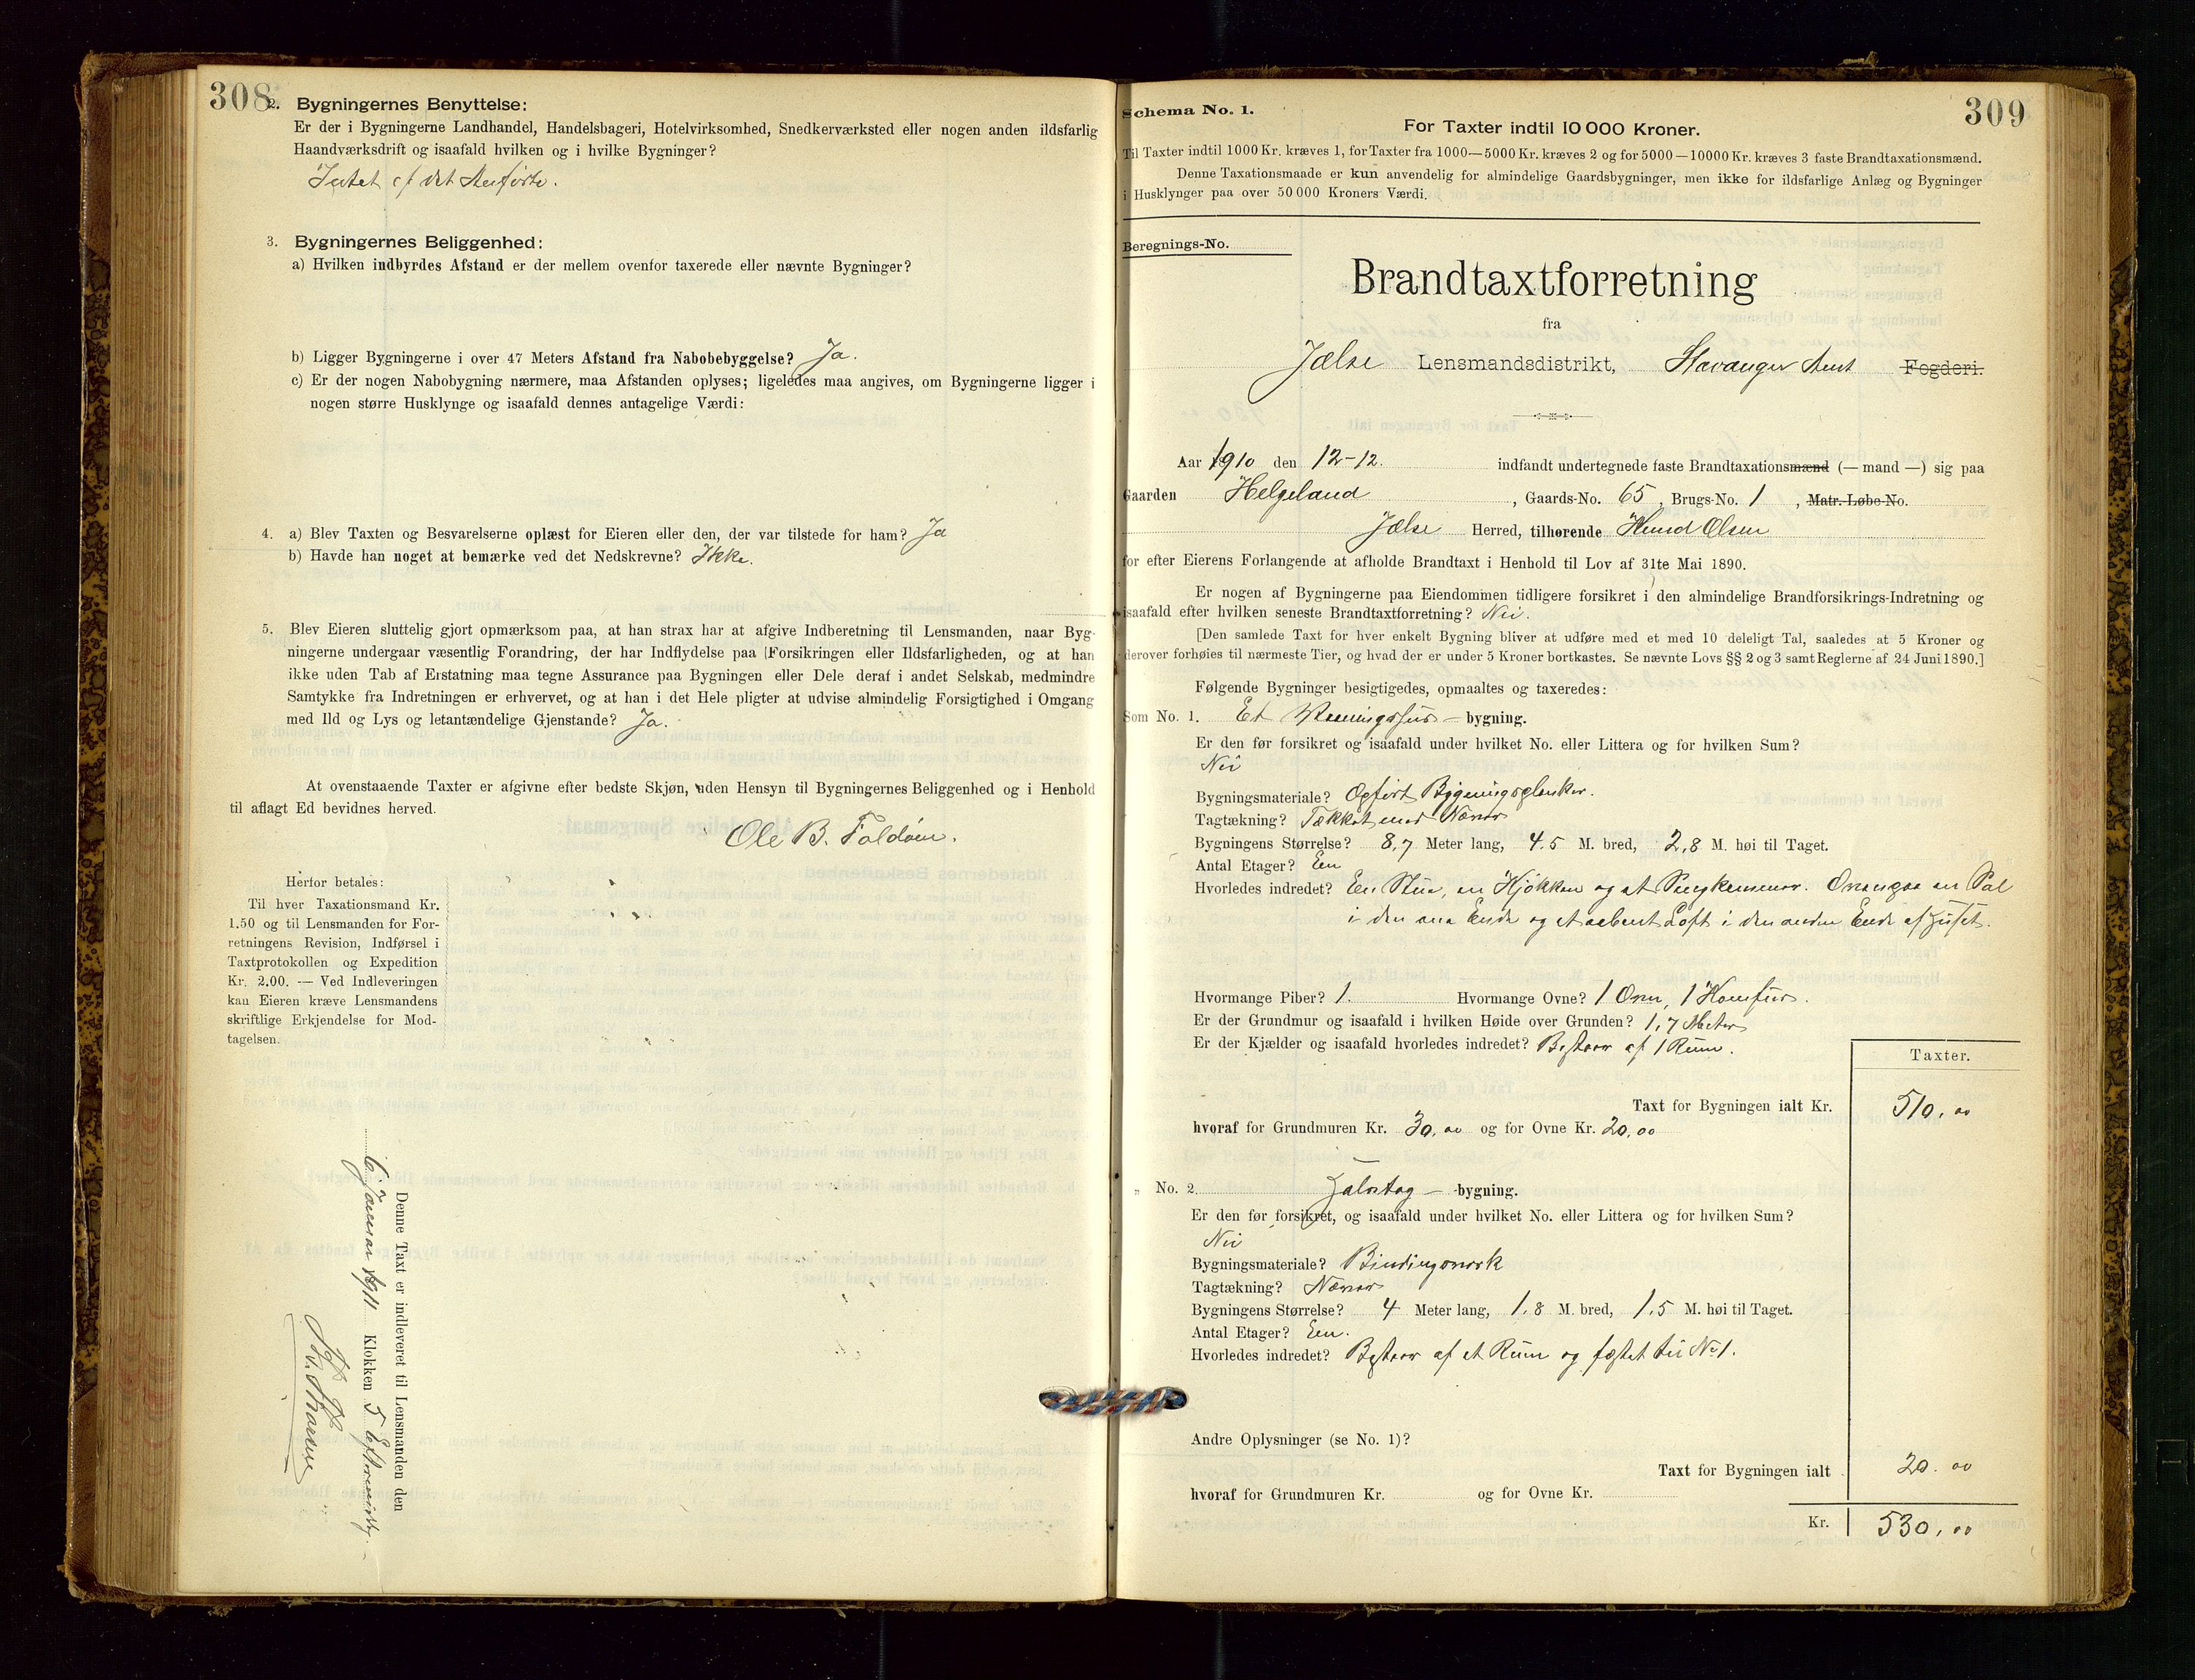 308
2. Bygningernes Benyttelse:
Er der i Bygningerne Landhandel, Handelsbageri, Hotelvirksomhed, Snedkerværksted eller nogen anden ildsfarlig
Haandværksdrift og isaafald hvilken og i hvilke Bygninger?
Intet af det Anførte.
3. Bygningernes Beliggenhed:
a) Hvilken indbyrdes Afstand er der mellem ovenfor taxerede eller nævnte Bygninger?
b) Ligger Bygningerne i over 47 Meters Afstand fra Nabobebyggelse? Ja.
c) Er der nogen Nabobygning nærmere, maa Afstanden oplyses; ligeledes maa angives, om Bygningerne ligger i
nogen større Husklynge og isaafald dennes antagelige Værdi:
4. a) Blev Taxten og Besvarelserne oplæst for Eieren eller den, der var tilstede for ham? Ja
b) Havde han noget at bemærke ved det Nedskrevne? Ikke.
5. Blev Eieren sluttelig gjort opmærksom paa, at han strax har at afgive Indberetning til Lensmanden, naar Byg-
ningerne undergaar væsentlig Forandring, der har Indflydelse paa Forsikringen eller Ildsfarligheden, og at han
ikke uden Tab af Erstatning maa tegne Assurance paa Bygningen eller Dele deraf i andet Selskab, medmindre
Samtykke fra Indretningen er erhvervet, og at han i det Hele pligter at udvise almindelig Forsigtighed i Omgang
med Ild og Lys og letantændelige Gjenstande? Ja.
At ovenstaaende Taxter er afgivne efter bedste Skjøn, uden Hensyn til Bygningernes Beliggenhed og i Henhold
til aflagt Ed bevidnes herved.
Ole B. Foldøen.
Herfor betales:
Til hver Taxationsmand Kr.
1.50 og til Lensmanden for For-
retningens Revision, Indførsel i
Taxtprotokollen og Expedition
Kr. 2.00. — Ved Indleveringen
kan Eieren kræve Lensmandens
skriftlige Erkjendelse for Mod-
tagelsen.
Denne Taxt er indleveret til Lensmanden den
6 Januar 1911 Klokken 5 Eftermiddag.
309
Schema No. 1.
For Taxter indtil 10 000 Kroner.
Til Taxter indtil 1000 Kr. kræves 1, for Taxter fra 1000—5000 Kr. kræves 2 og for 5000—10000 Kr. kræves 3 faste Brandtaxationsmænd.
Denne Taxationsmaade er kun anvendelig for almindelige Gaardsbygninger, men ikke for ildsfarlige Anlæg og Bygninger
i Husklynger paa over 50 000 Kroners Værdi.
Beregnings-No.
Brandtaxtforretning
fra
Jælse Lensmandsdistrikt, Stavanger Amt Fogderi.
Aar 1910 den 12-12. indfandt undertegnede faste Brandtaxationsmænd (— mand —) sig paa
Gaarden Helgeland, Gaards-No. 65, Brugs-No. 1, Matr.-Løbe-No.
Jælse Herred, tilhørende Knud Olsen
for efter Eierens Forlangende at afholde Brandtaxt i Henhold til Lov af 31te Mai 1890.
Er nogen af Bygningerne paa Eiendommen tidligere forsikret i den almindelige Brandforsikrings-Indretning og
isaafald efter hvilken seneste Brandtaxtforretning? Nei.
[Den samlede Taxt for hver enkelt Bygning bliver at udføre med et med 10 deleligt Tal, saaledes at 5 Kroner og
derover forhøies til nærmeste Tier, og hvad der er under 5 Kroner bortkastes. Se nævnte Lovs §§ 2 og 3 samt Reglerne af 24 Juni 1890.]
Følgende Bygninger besigtigedes, opmaaltes og taxeredes:
Som No. 1. Et Vaaningshus — bygning.
Er den før forsikret og isaafald under hvilket No. eller Littera og for hvilken Sum?
Nei
Bygningsmateriale? Opført Bygningsplanker.
Tagtækning? Tækket med Næver
Bygningens Størrelse? 8,7 Meter lang, 4.5 M. bred, 2,8 M. høi til Taget.
Antal Etager? Een
Hvorledes indredet? En Stue, en Kjøkken og et Sengkammer. Ovenpaa en Sal
i den ene Ende og et aabent Loft i den anden Ende af Huset.
Hvormange Piber? 1. Hvormange Ovne? 1 Ovn, 1 Komfur.
Er der Grundmur og isaafald i hvilken Høide over Grunden? 1,7 Meter
Er der Kjælder og isaafald hvorledes indredet? Bestaar af 1 Rum.
Taxter.
Taxt for Bygningen ialt Kr. 510,00
hvoraf for Grundmuren Kr. 30,00 og for Ovne Kr. 20,00
„ No. 2. Halvtag — -bygning.
Er den før forsikret, og isaafald under hvilket No. eller Littera og for hvilken Sum?
Nei
Bygningsmateriale? Bindingsverk
Tagtækning? Næver
Bygningens Størrelse? 4 Meter lang, 1.8 M. bred, 1,5 M. høi til Taget.
Antal Etager? Een.
Hvorledes indredet? Bestaar af et Rum og fæstet til No 1.
Andre Oplysninger (se No. 1)?
Taxt for Bygningen ialt 20.00
hvoraf for Grundmuren Kr. og for Ovne Kr.
Kr. 530,00